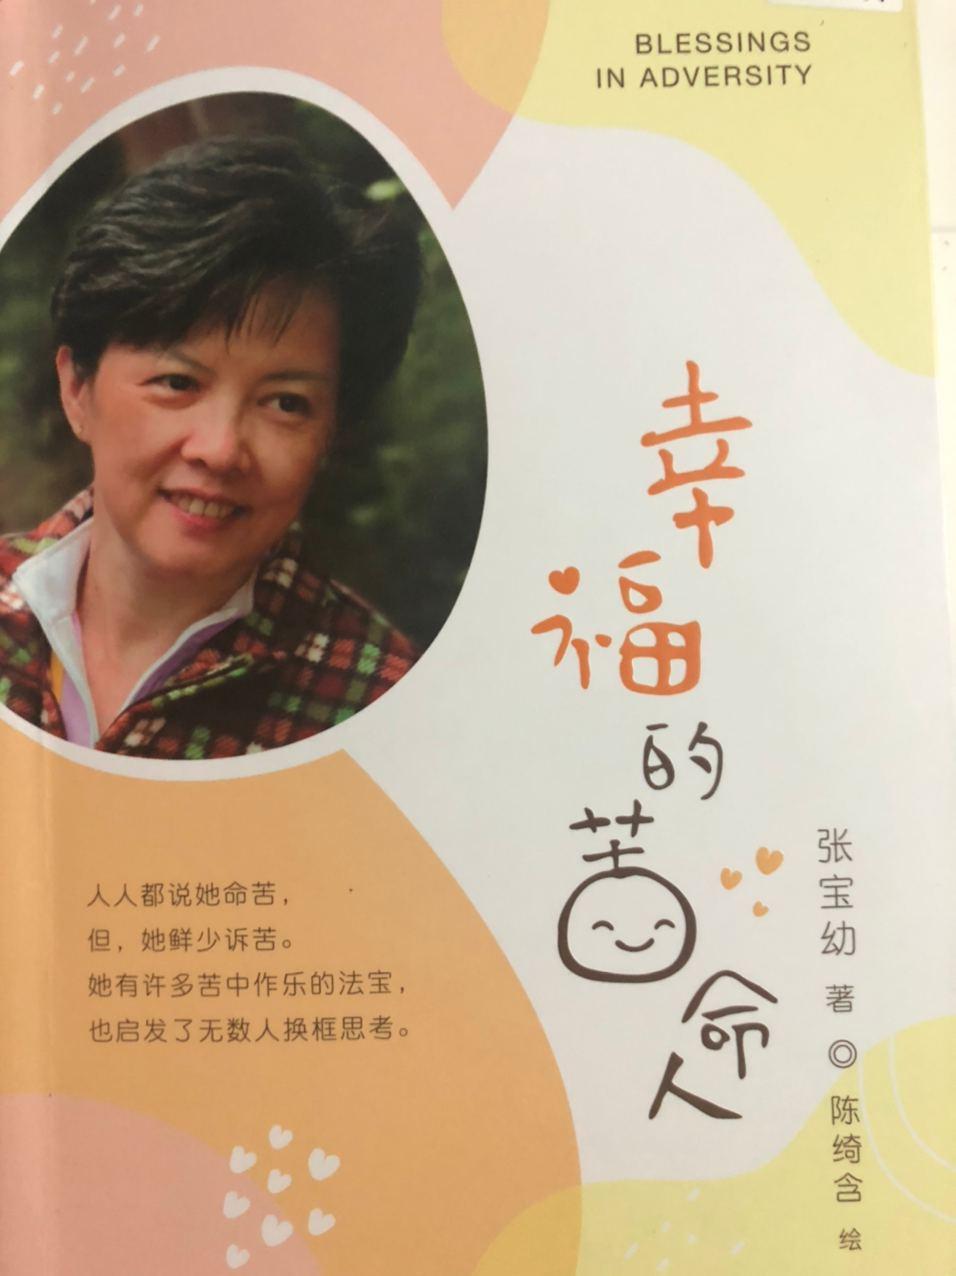 BLESSINGS
IN ADVERSITY
幸福的苦命人
张宝幼 著 ◎ 陈绮含 绘
人人都说她命苦，
但，她鲜少诉苦。
她有许多苦中作乐的法宝，
也启发了无数人换框思考。